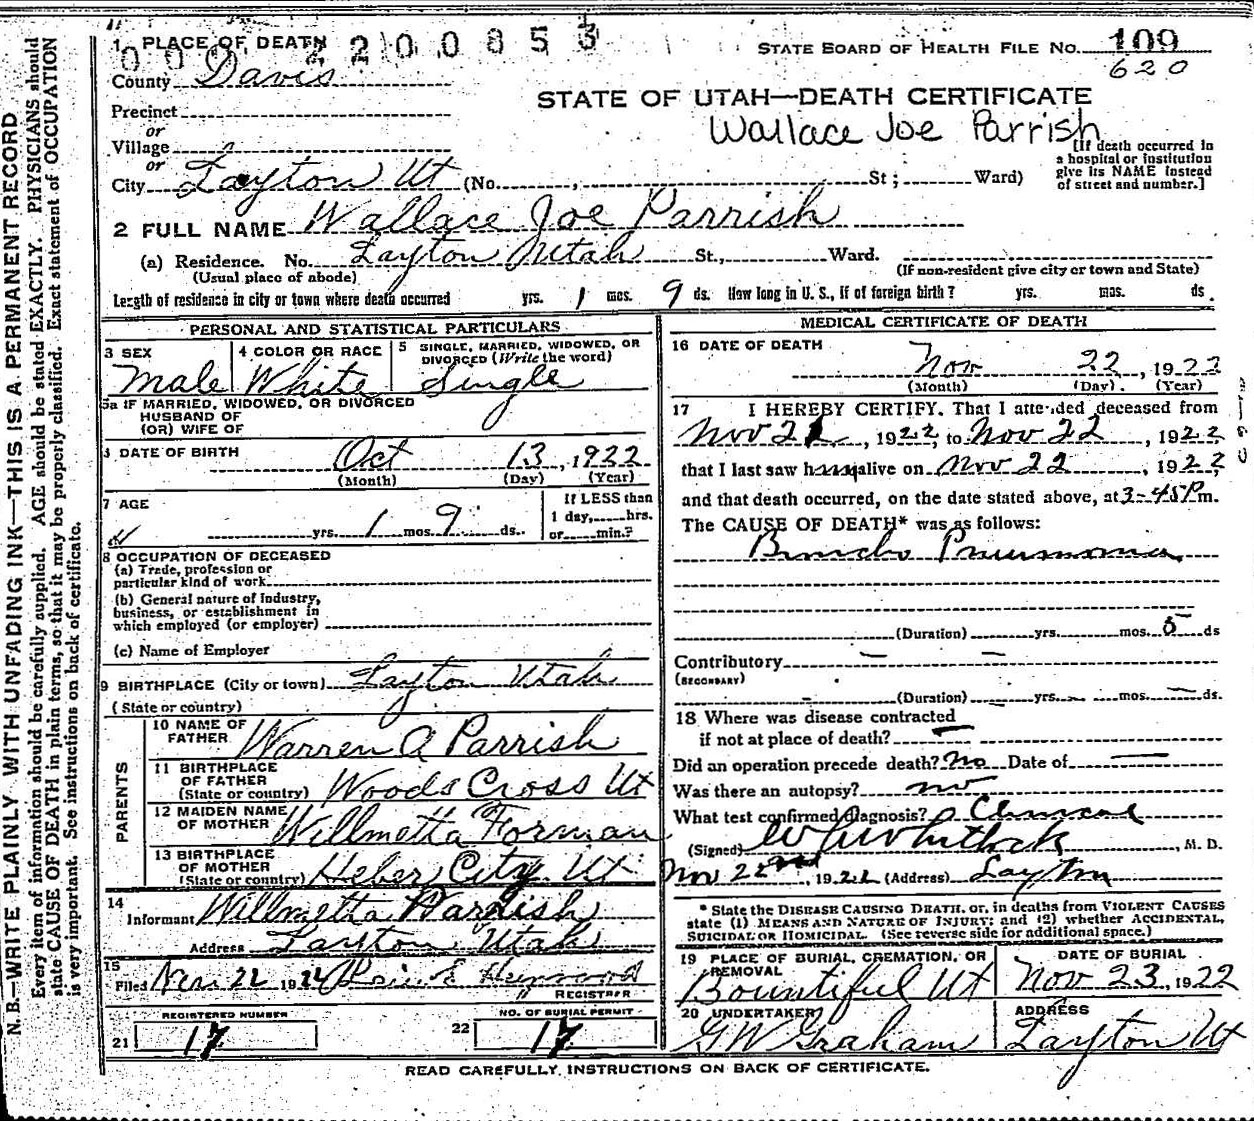 1 PLACE OF DEATH
0002200853
STATE BOARD OF HEALTH FILE NO. 109
620
County Davis
STATE OF UTAH—DEATH CERTIFICATE
Precinct
or
Village
or
Wallace Joe Parrish
[If death occurred in a hospital or institution give its NAME instead of street and number.]
City Layton Ut (No. , St ; Ward)
2 FULL NAME Wallace Joe Parrish
(a) Residence. No. Layton Utah St., Ward.
(Usual place of abode) (If non-resident give city or town and State)
Length of residence in city or town where death occurred yrs. 1 mos. 9 ds. How long in U. S., if of foreign birth? yrs. mos. ds.
PERSONAL AND STATISTICAL PARTICULARS
3 SEX
Male
4 COLOR OR RACE
White
5 SINGLE, MARRIED, WIDOWED, OR DIVORCED (Write the word)
Single
5a IF MARRIED, WIDOWED, OR DIVORCED
HUSBAND OF
(OR) WIFE OF
DATE OF BIRTH Oct 13, 1922
(Month) (Day) (Year)
7 AGE
yrs. 1 mos. 9 ds.
If LESS than
1 day, hrs.
or min.?
8 OCCUPATION OF DECEASED
(a) Trade, profession or
particular kind of work
(b) General nature of Industry,
business, or establishment in
which employed (or employer)
(c) Name of Employer
9 BIRTHPLACE (City or town) Layton Utah
(State or country)
PARENTS
10 NAME OF FATHER Warren A Parrish
11 BIRTHPLACE OF FATHER (State or country) Woods Cross Ut
12 MAIDEN NAME OF MOTHER Willmetta Forman
13 BIRTHPLACE OF MOTHER (State or country) Heber City Ut
14
Informant Willmetta Parrish
Address Layton Utah
15
Filed Nov. 22 192
REGISTRAR
REGISTERED NUMBER
21 17
NO. OF BURIAL PERMIT
22 17
MEDICAL CERTIFICATE OF DEATH
16 DATE OF DEATH
Nov 22, 1922
(Month) (Day) (Year)
17 I HEREBY CERTIFY, That I attended deceased from
Nov 21, 1922, to Nov 22, 1922
that I last saw h alive on Nov 22, 1922,
and that death occurred, on the date stated above, at 3-45 P m.
The CAUSE OF DEATH* was as follows:
Broncho Pneumonia
(Duration) yrs. mos. 5 ds
Contributory
(SECONDARY)
(Duration) yrs. mos. ds.
18 Where was disease contracted
if not at place of death?
Did an operation precede death? No Date of
Was there an autopsy? no
What test confirmed diagnosis? Clinical
(Signed) Whitlock, M. D.
Nov 22nd, 192 (Address) Layton
* State the DISEASE CAUSING DEATH, or, in deaths from VIOLENT CAUSES
state (1) MEANS AND NATURE OF INJURY; and (2) whether ACCIDENTAL,
SUICIDAL OR HOMICIDAL. (See reverse side for additional space.)
19 PLACE OF BURIAL, CREMATION, OR REMOVAL
Bountiful Ut
DATE OF BURIAL
Nov 23, 1922
20 UNDERTAKER
G W Graham
ADDRESS
Layton Ut
READ CAREFULLY INSTRUCTIONS ON BACK OF CERTIFICATE.
N. B.—WRITE PLAINLY WITH UNFADING INK—THIS IS A PERMANENT RECORD
Every item of information should be carefully supplied. AGE should be stated EXACTLY. PHYSICIANS should
state CAUSE OF DEATH in plain terms, so that it may be properly classified. Exact statement of OCCUPATION
is very important. See instructions on back of certificate.